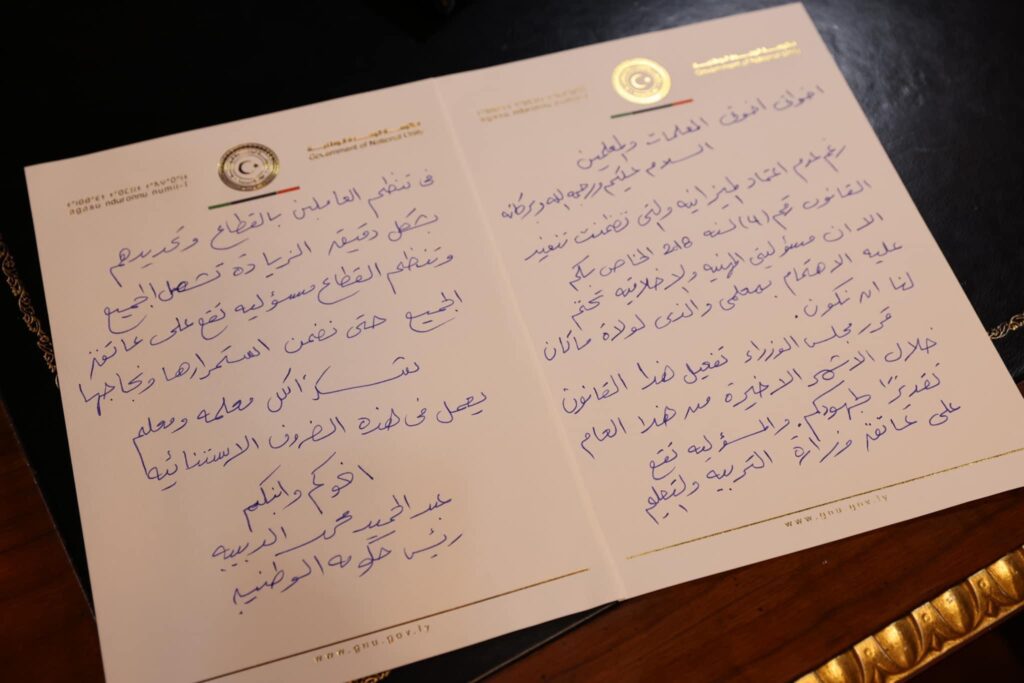 حكومة الوحدة الوطنية
Government of National Unity
agasu nduronnu numii-i
اخواني اخوتي المعلمات والمعلمين
السلام عليكم ورحمة الله وبركاته
رغم عدم اعتماد الميزانيه ولتي تضمنت تنفيد
القانون رقم (4) لسنه 218 الخاص بكم
الا ان مسؤليتي المهنيه ولاخلاقيه تحتم
عليه الاهتمام بمعلمي والذي لولاة ماكان
لنا ان نكون.
قرر مجلس الوزراء تفعيل هذا القانون
خلال الاشهر الاخيرة من هذا العام
تقديرًا لجهودكم. والمسؤليه تقع
على عاتقة وزارة التربيه ولتعليم
www.gnu.gov.ly
حكومة الوحدة الوطنية
Government of National Unity
agasu nduronnu numii-i
في تنظيم العاملين بالقطاع وتحديدهم
بشكل دقيقه الزيادة تشمل الجميع
وتنظيم القطاع مسؤليه تقع على عاتقة
الجميع حتى نضمن استمرارها ونجاحها
شكرًا لكل معلمه ومعلم
يعمل في هذه الضروف الاستتنائيه
اخوكم وابنكم
عبدالحميد محمد الدبيبه
رئيس حكومه الوطنيه
www.gnu.gov.ly